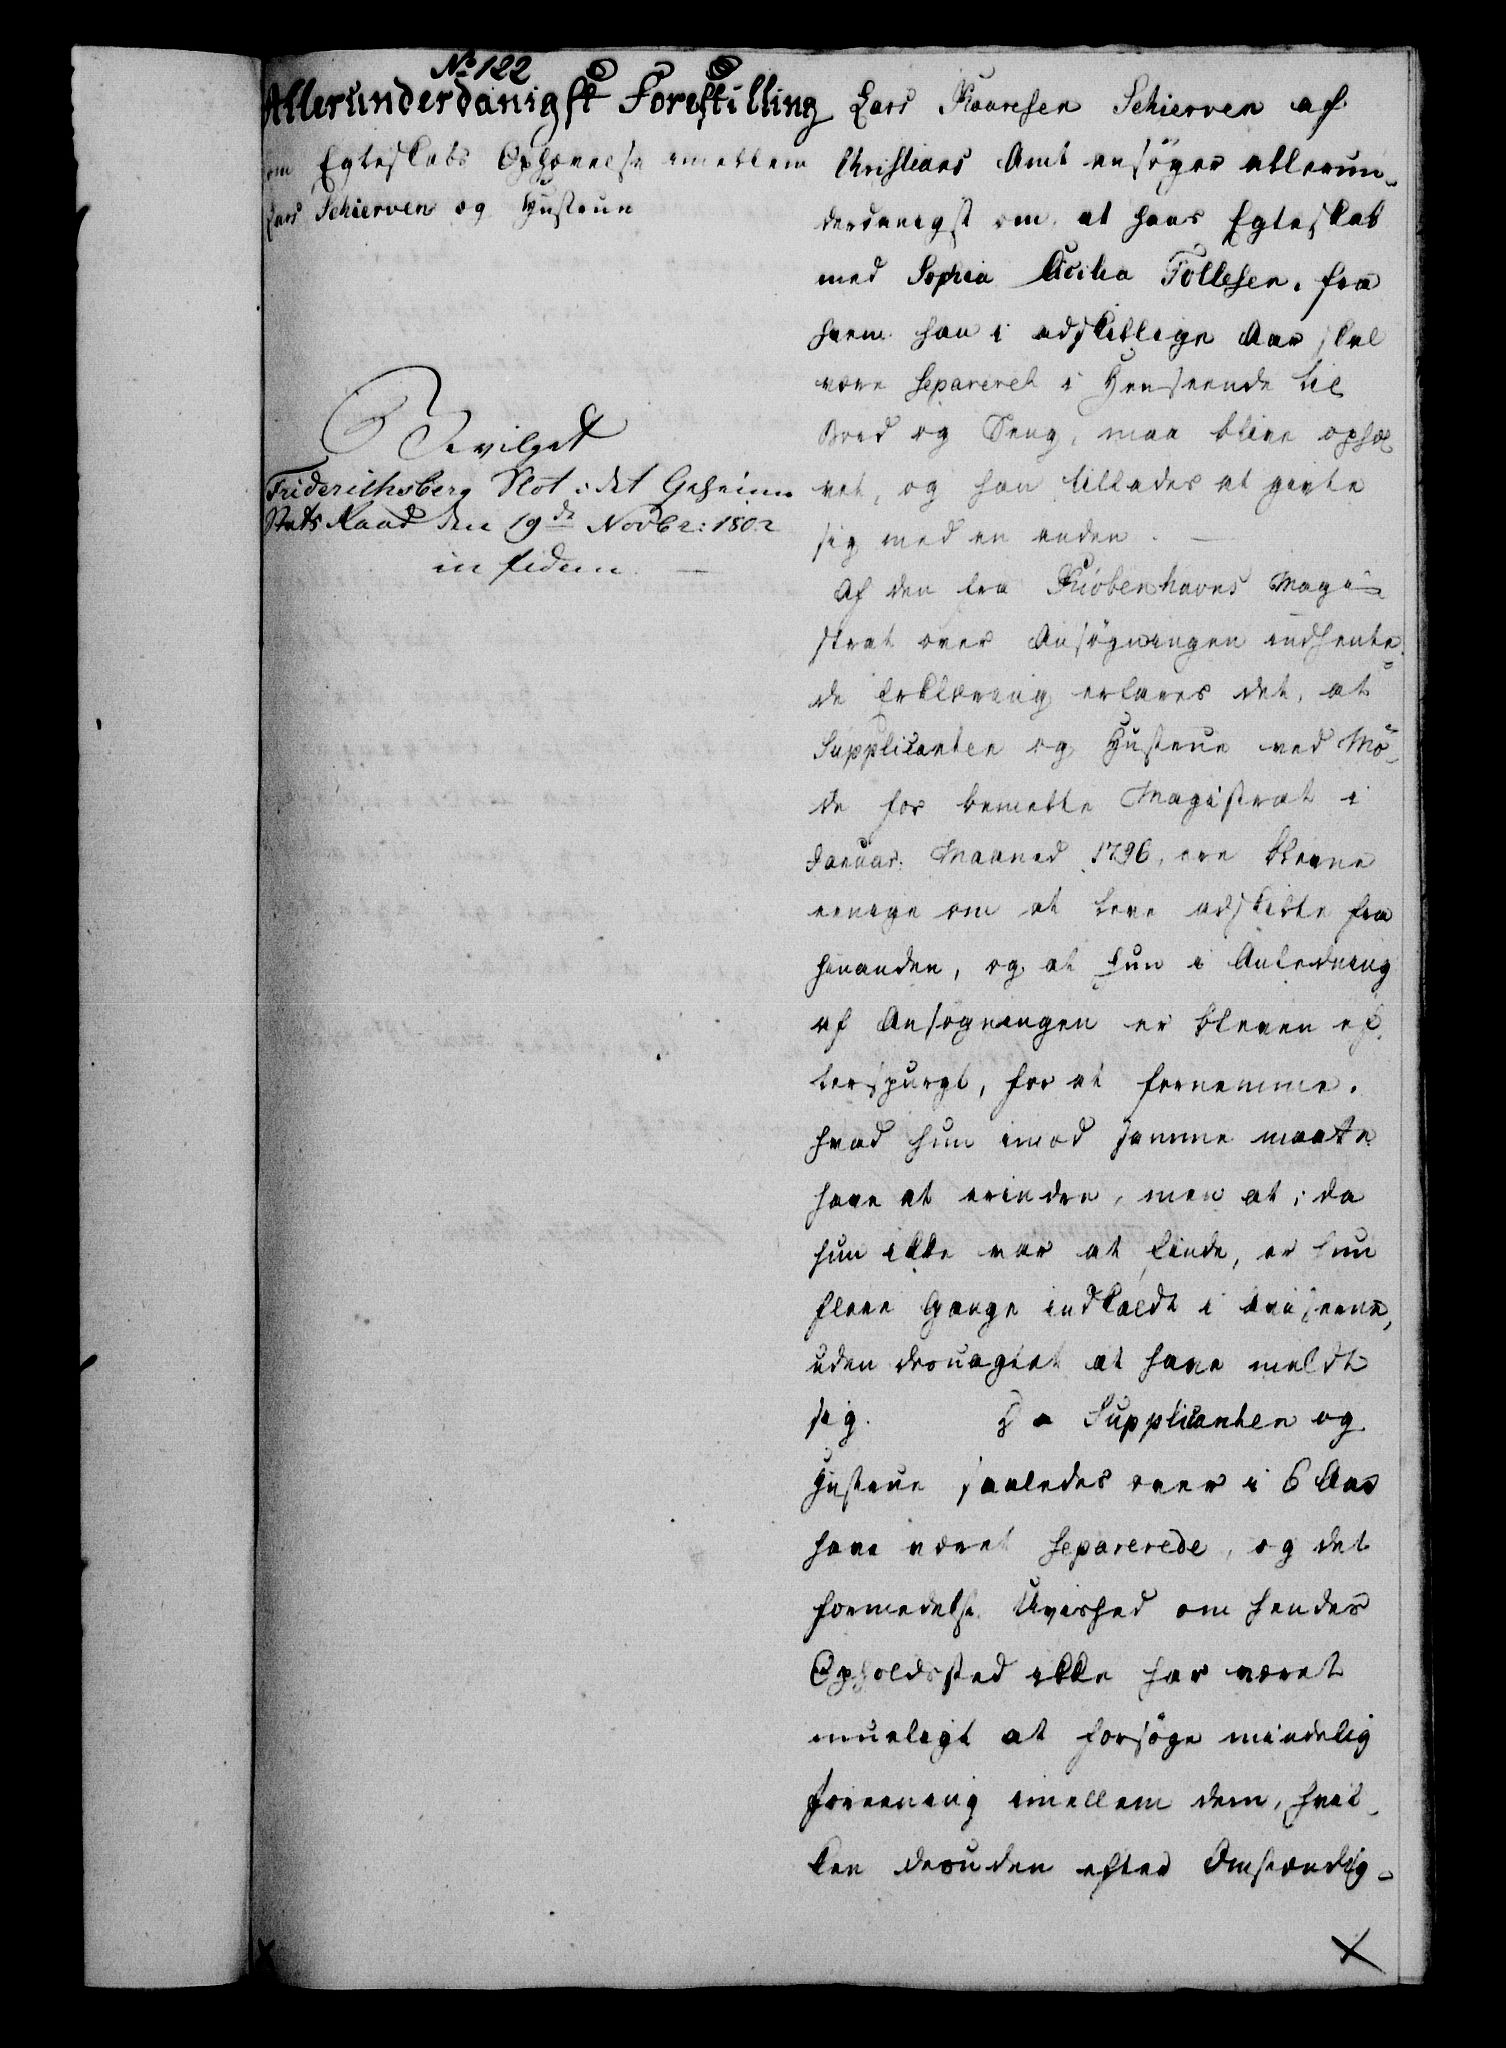 No 122
Allerunderdanigst Forestilling
om Egteskabs Ophævelse imellem
Lars Schierven og Hustrue
Bevilget
Friderichsberg Slot i det Geheime
Stats Raad den 19de Novbr: 1802
in fidem.
Lars Kaaresen Schierven af
Christians Amt ansøger allerun-
derdanigst om at hans Egteskab
med Sophia Cecilia Tollesen, fra
hvem han i adskillige Aar skal
være separeret i Henseende til
Bord og Seng, maa blive ophæ
vet, og han tillades at givte
sig med en anden.
Af den fra Kiøbenhavns Magi-
strat over Ansøgningen indhente-
de Erklæring erfares det, at
Supplicanten og Hustrue ved Mø-
de for bemelte Magistrat i
Januar: Maaned 1796, ere blevne
eenige om at leve adskilte fra
hinanden, og at hun i Anledning
af Ansøgningen er bleven ef-
terspurgt, for at fornemme,
hvad hun imod samme maatte
have at erindre, men at, da
hun ikke var at finde, er hun
flere Gange indkaldt i Aviserne,
uden desuagtet at have meldt
sig. Da Supplicanten og
Hustrue saaledes over i 6 Aar
have været separerede, og det
formedelst Uvished om hendes
Opholdssted ikke har været
mueligt at forsøge mindelig
foreening imellem dem, hvil-
ken desuden efter Omstændig-